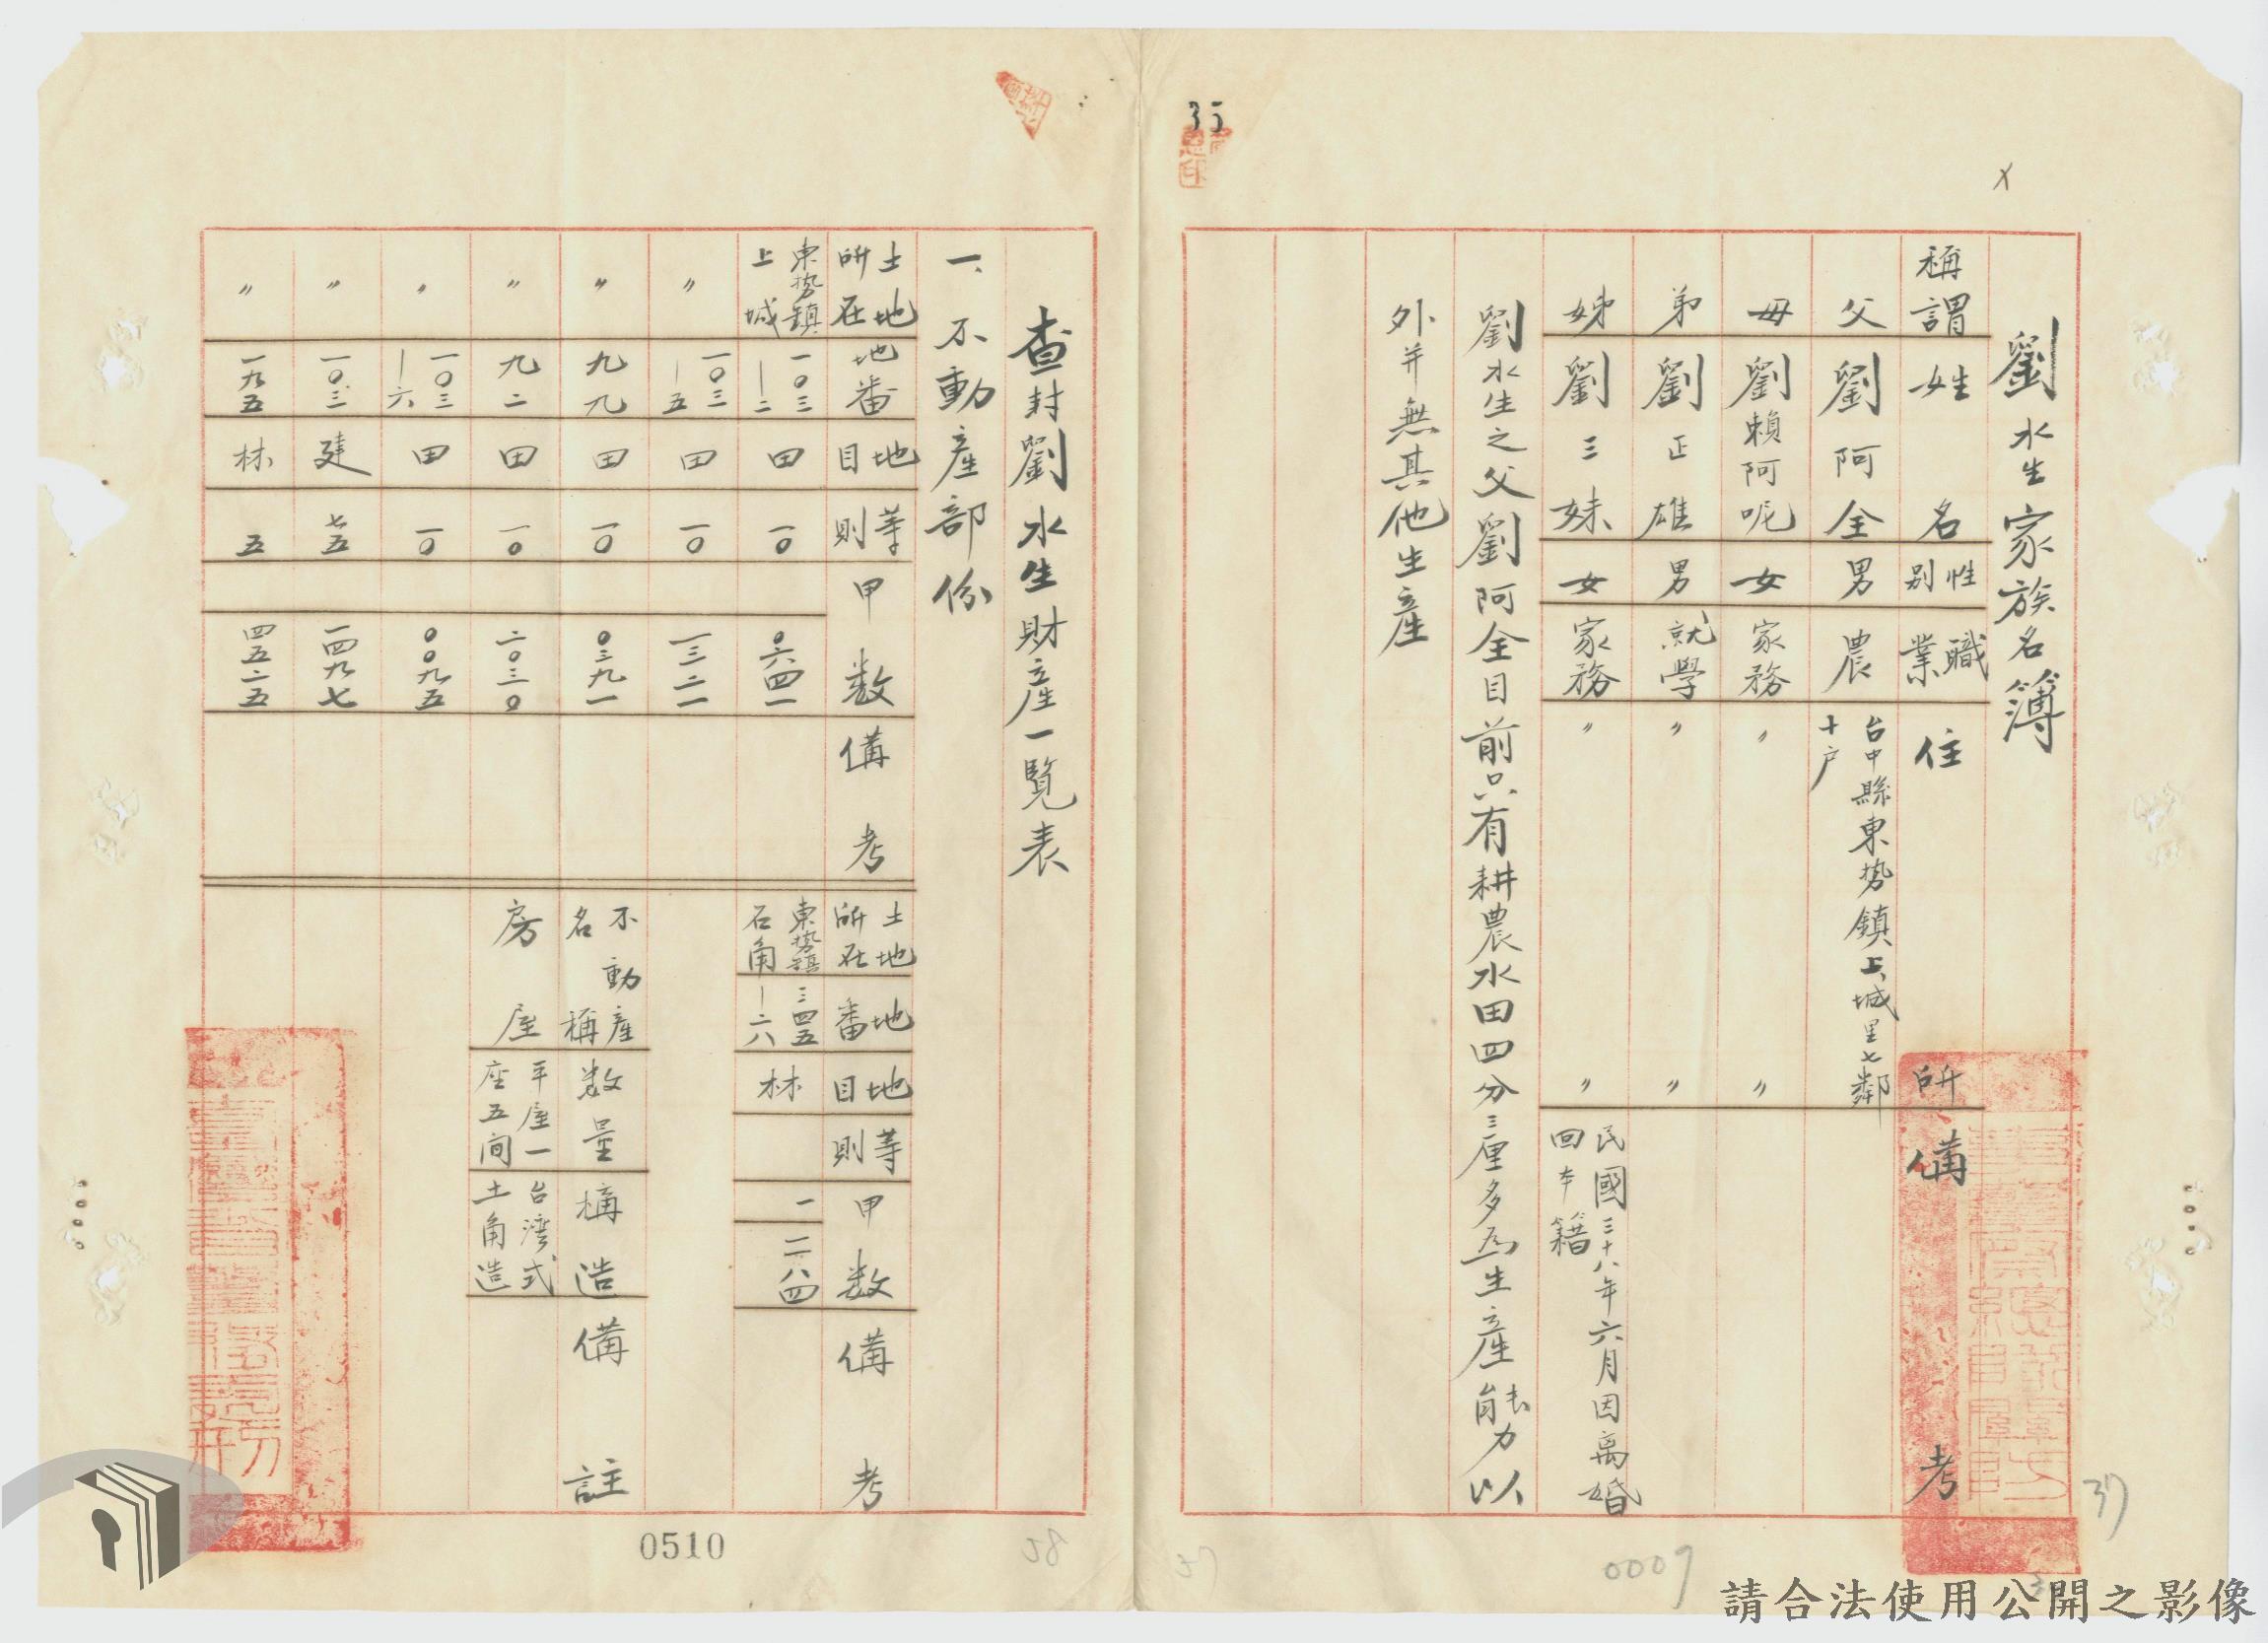 35
劉水生家族名簿
稱謂 姓名 性別 職業 住所 備考
父 劉阿全 男 農 台中縣東势鎮上城里七鄰十户
母 劉賴阿呢 女 家務 〃 〃
弟 劉正雄 男 就學 〃 〃
姊 劉三妹 女 家務 〃 〃 民國三十八年六月因离婚回本籍
劉水生之父劉阿全目前只有耕農水田四分三厘多為生產能力以
外并無其他生產
37
0007
查封劉水生財產一覧表
一、不動產部份
土地所在 地番 地目 等則 甲数 備考 土地所在 地番 地目 等則 甲数 備考
東势鎮上城 一〇三—二 田 一〇 〇六四一 東势鎮石角 三四五—二六 林 一 二八四
〃 一〇三—五 田 一〇 一三二一
〃 九九 田 一〇 〇三九一 不動產名稱 数量 構造 備註
〃 九二 田 一〇 二〇三〇 房屋 平屋一座五间 台湾式土角造
〃 一〇三—六 田 一〇 〇〇九五
〃 一〇三 建 七五 一四九七
〃 一九五 林 五 四五二五
0510
58
請合法使用公開之影像